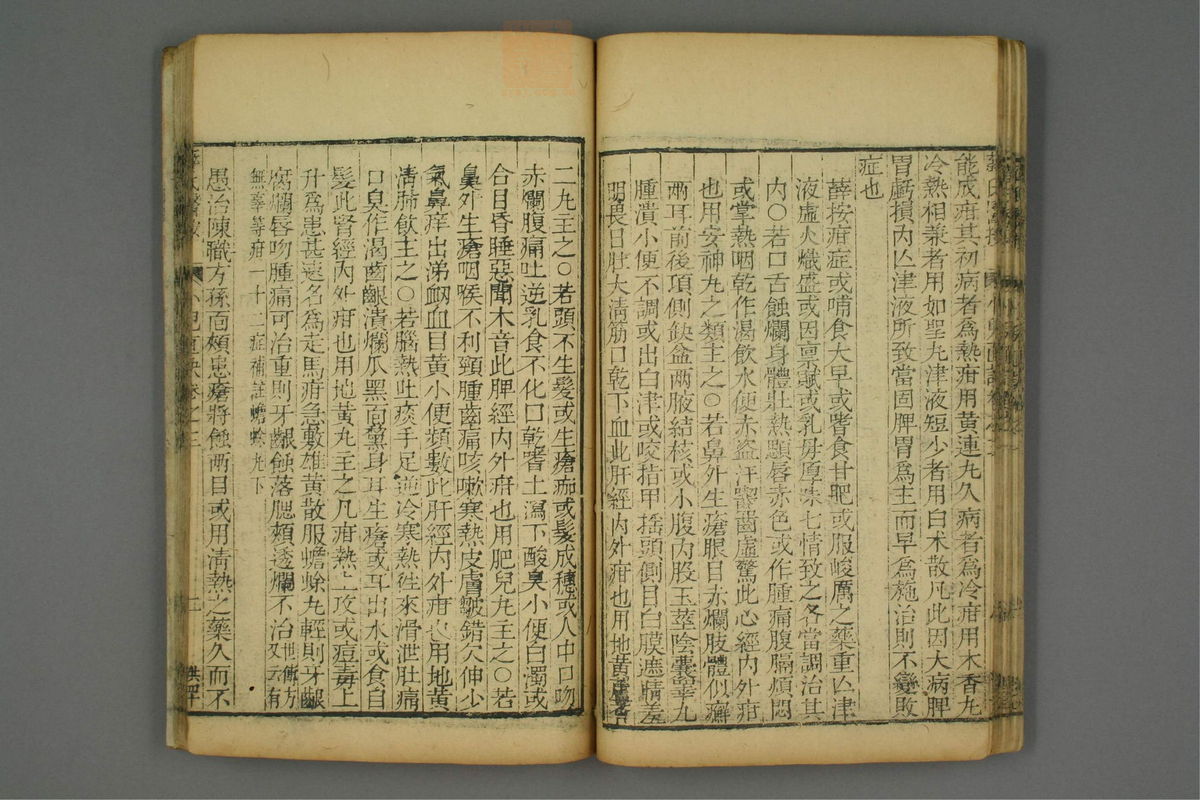 能成疳其初病者爲熱疳用黄連丸久病者爲冷疳用木香丸
冷熱相兼者用如聖丸津液短少者用白术散凡此因大病脾
胃虧損内亾津液所致當固脾胃爲主而早爲施治則不變敗
症也
薛按疳症或哺食大早或嗜食甘肥或服峻厲之藥重亾津
液虛火熾盛或因禀賦或乳母厚味七情致之各當調治其
内○若口舌蝕爛身體壯熱顋唇赤色或作腫痛腹膈煩悶
或掌熱咽乾作渴飲水便赤盗汗嚙齒虛驚此心經内外疳
也用安神丸之類主之○若鼻外生瘡眼目赤爛肢體似癬
兩耳前後項側缺盆兩腋結核或小腹内股玉莖陰囊睾丸
腫潰小便不調或出白津或咬指甲揺頭側目白膜遮睛羞
明畏日肚大淸筋口乾下血此肝經内外疳也用地黄蘆薈
二丸主之○若頭不生髮或生瘡痂或髮成穗或人中口吻
赤爛腹痛吐逆乳食不化口乾嗜土瀉下酸臭小便白濁或
合目昏睡惡聞木音此脾經内外疳也用肥兒丸主之○若
鼻外生瘡咽喉不利頸腫齒痛咳嗽寒熱皮膚皴錯欠伸少
氣鼻痒出涕衂血目黄小便頻數此肝經内外疳也用地黄
淸肺飲主之○若腦熱吐痰手足逆冷寒熱徃來滑泄肚痛
口臭作渴齒齦潰爛爪黑面黧身耳生瘡或耳出水或食自
髮此腎經内外疳也用地黄丸主之凡疳熱上攻或痘毒上
升爲患甚速名爲走馬疳急敷雄黄散服蟾蜍丸輕則牙齦
腐爛唇吻腫痛可治重則牙齦蝕落腮頰透爛不治又云有
無辜等疳一十二症補註蟾蜍丸下
愚治陳職方孫面頰患瘡將蝕兩目或用淸熱之藥久而不